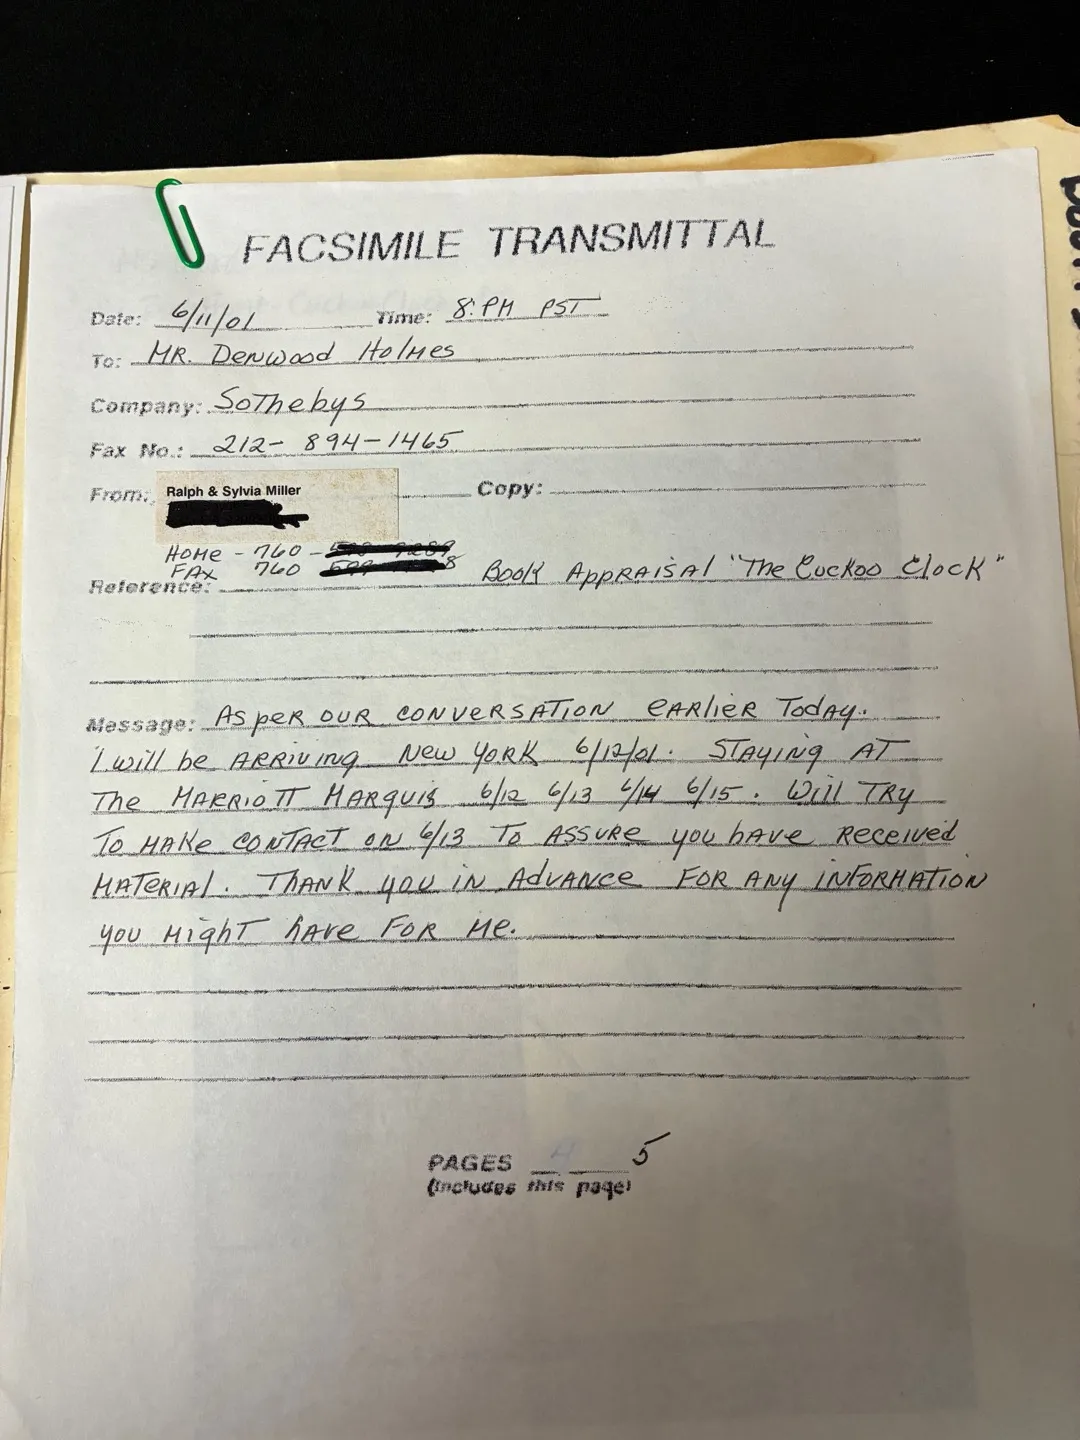 FACSIMILE TRANSMITTAL
Date: 6/11/01 Time: 8:PM PST
To: MR. Denwood Holmes
Company: Sothebys
Fax No.: 212-894-1465
From: Ralph & Sylvia Miller Copy:
HOME - 760 -
FAX 760
Reference: Book Appraisal "The Cuckoo Clock"
Message: As per our conversation earlier today.
I will be arriving New York 6/12/01. Staying at
the Marriott Marquis 6/12 6/13 6/14 6/15. Will try
to make contact on 6/13 to assure you have received
material. Thank you in advance for any information
you might have for me.
PAGES 5
(includes this page)